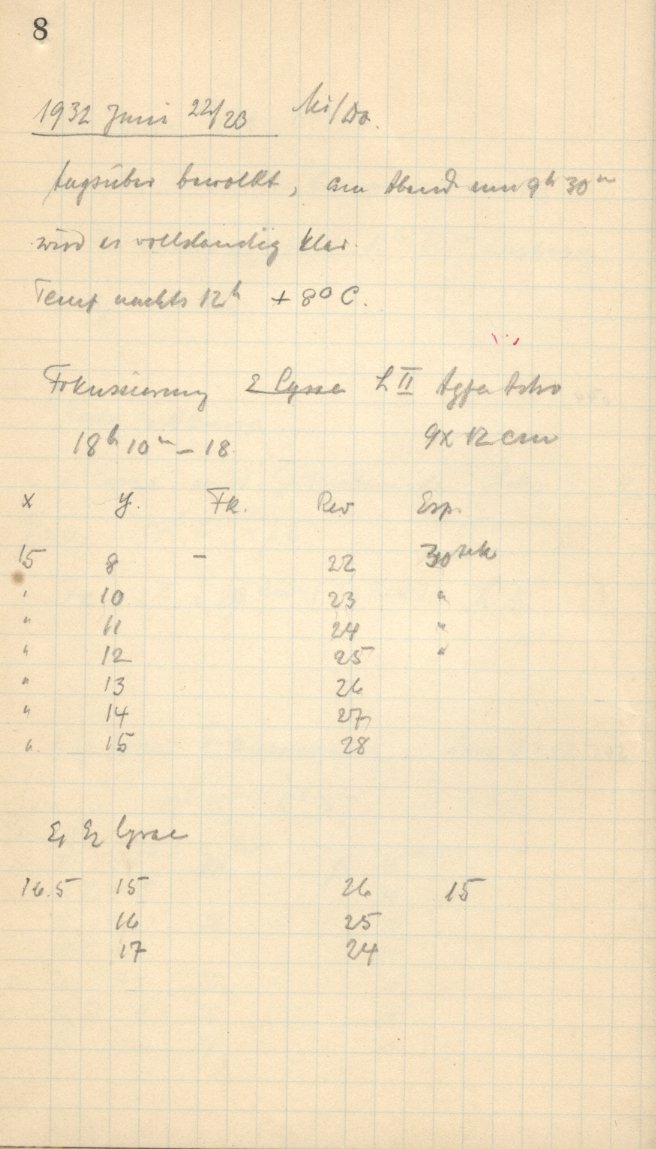 8
1932 Juni 22/23 Mi/Do.
tagsüber bewölkt, am Abend um 9h 30m
wird es vollständig klar.
Temp nachts 12h + 8° C.
Fokussierung ε Lyrae L II Agfa Astro
18h 10m – 18 9x12 cm
x y. Fk. Rev Exp.
15 8 – 22 30 sek
" 10 23 "
" 11 24 "
" 12 25 "
" 13 26
" 14 27
" 15 28
ε1 ε2 Lyrae
16.5 15 26 15
16 25
17 24